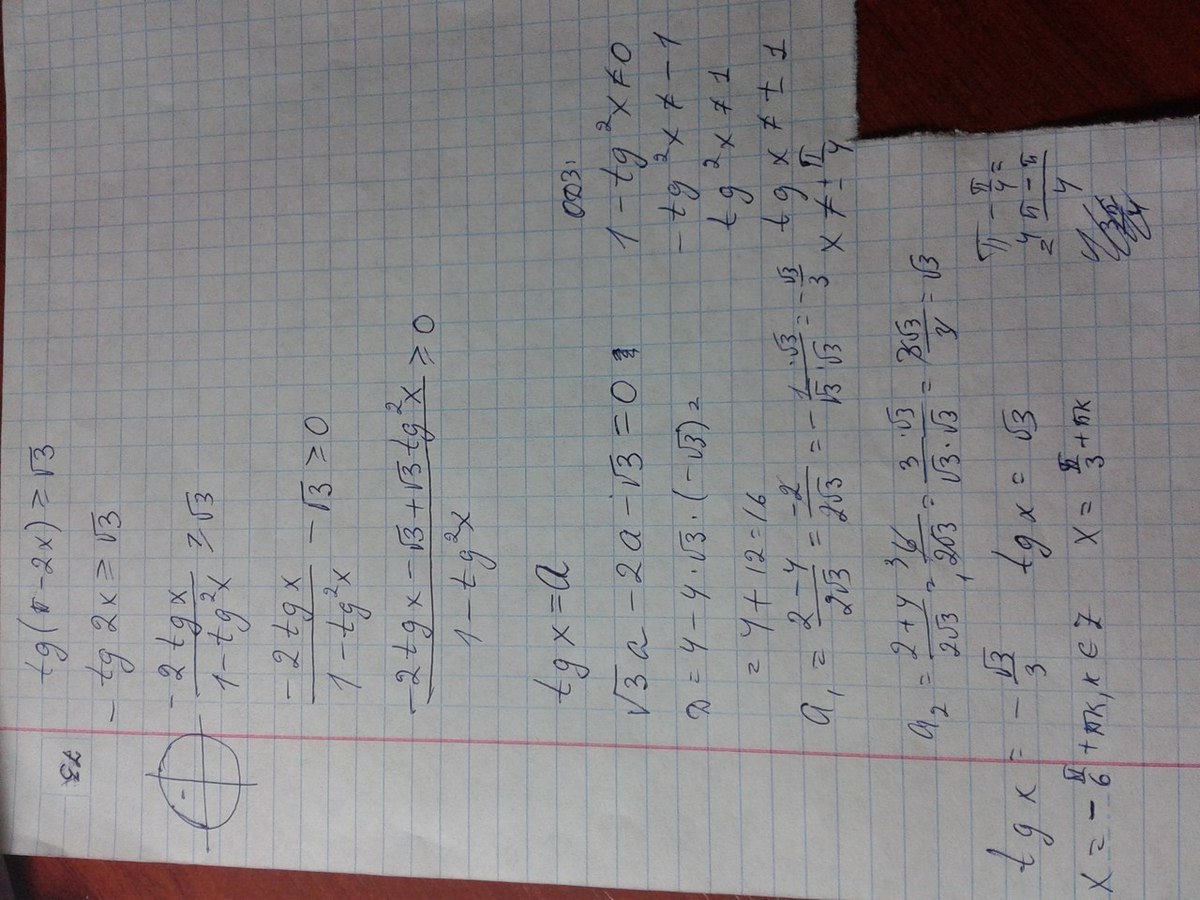 73
tg(π-2x) ≥ √3
- tg 2x ≥ √3
- 2tg x / 1-tg²x ≥ √3
-2tg x / 1-tg²x - √3 ≥ 0
-2tg x - √3 + √3 tg²x / 1-tg²x ≥ 0
tg x = a
√3 a - 2a - √3 = 0
D = 4 - 4·√3·(-√3) =
= 4 + 12 = 16
a₁ = 2-4 / 2√3 = -2 / 2√3 = - 1·√3 / √3·√3 = - √3 / 3
a₂ = 2+4 / 2√3 = 6 3 / 2√3 = 3·√3 / √3·√3 = 3√3 / 3 = √3
tg x = - √3 / 3 tg x = √3
x = - π/6 + πk, k ∈ Z x = π/3 + πk
ОДЗ:
1 - tg²x ≠ 0
- tg²x ≠ -1
tg²x ≠ 1
tg x ≠ ± 1
x ≠ ± π/4
π - π/4 =
= 4π - π / 4